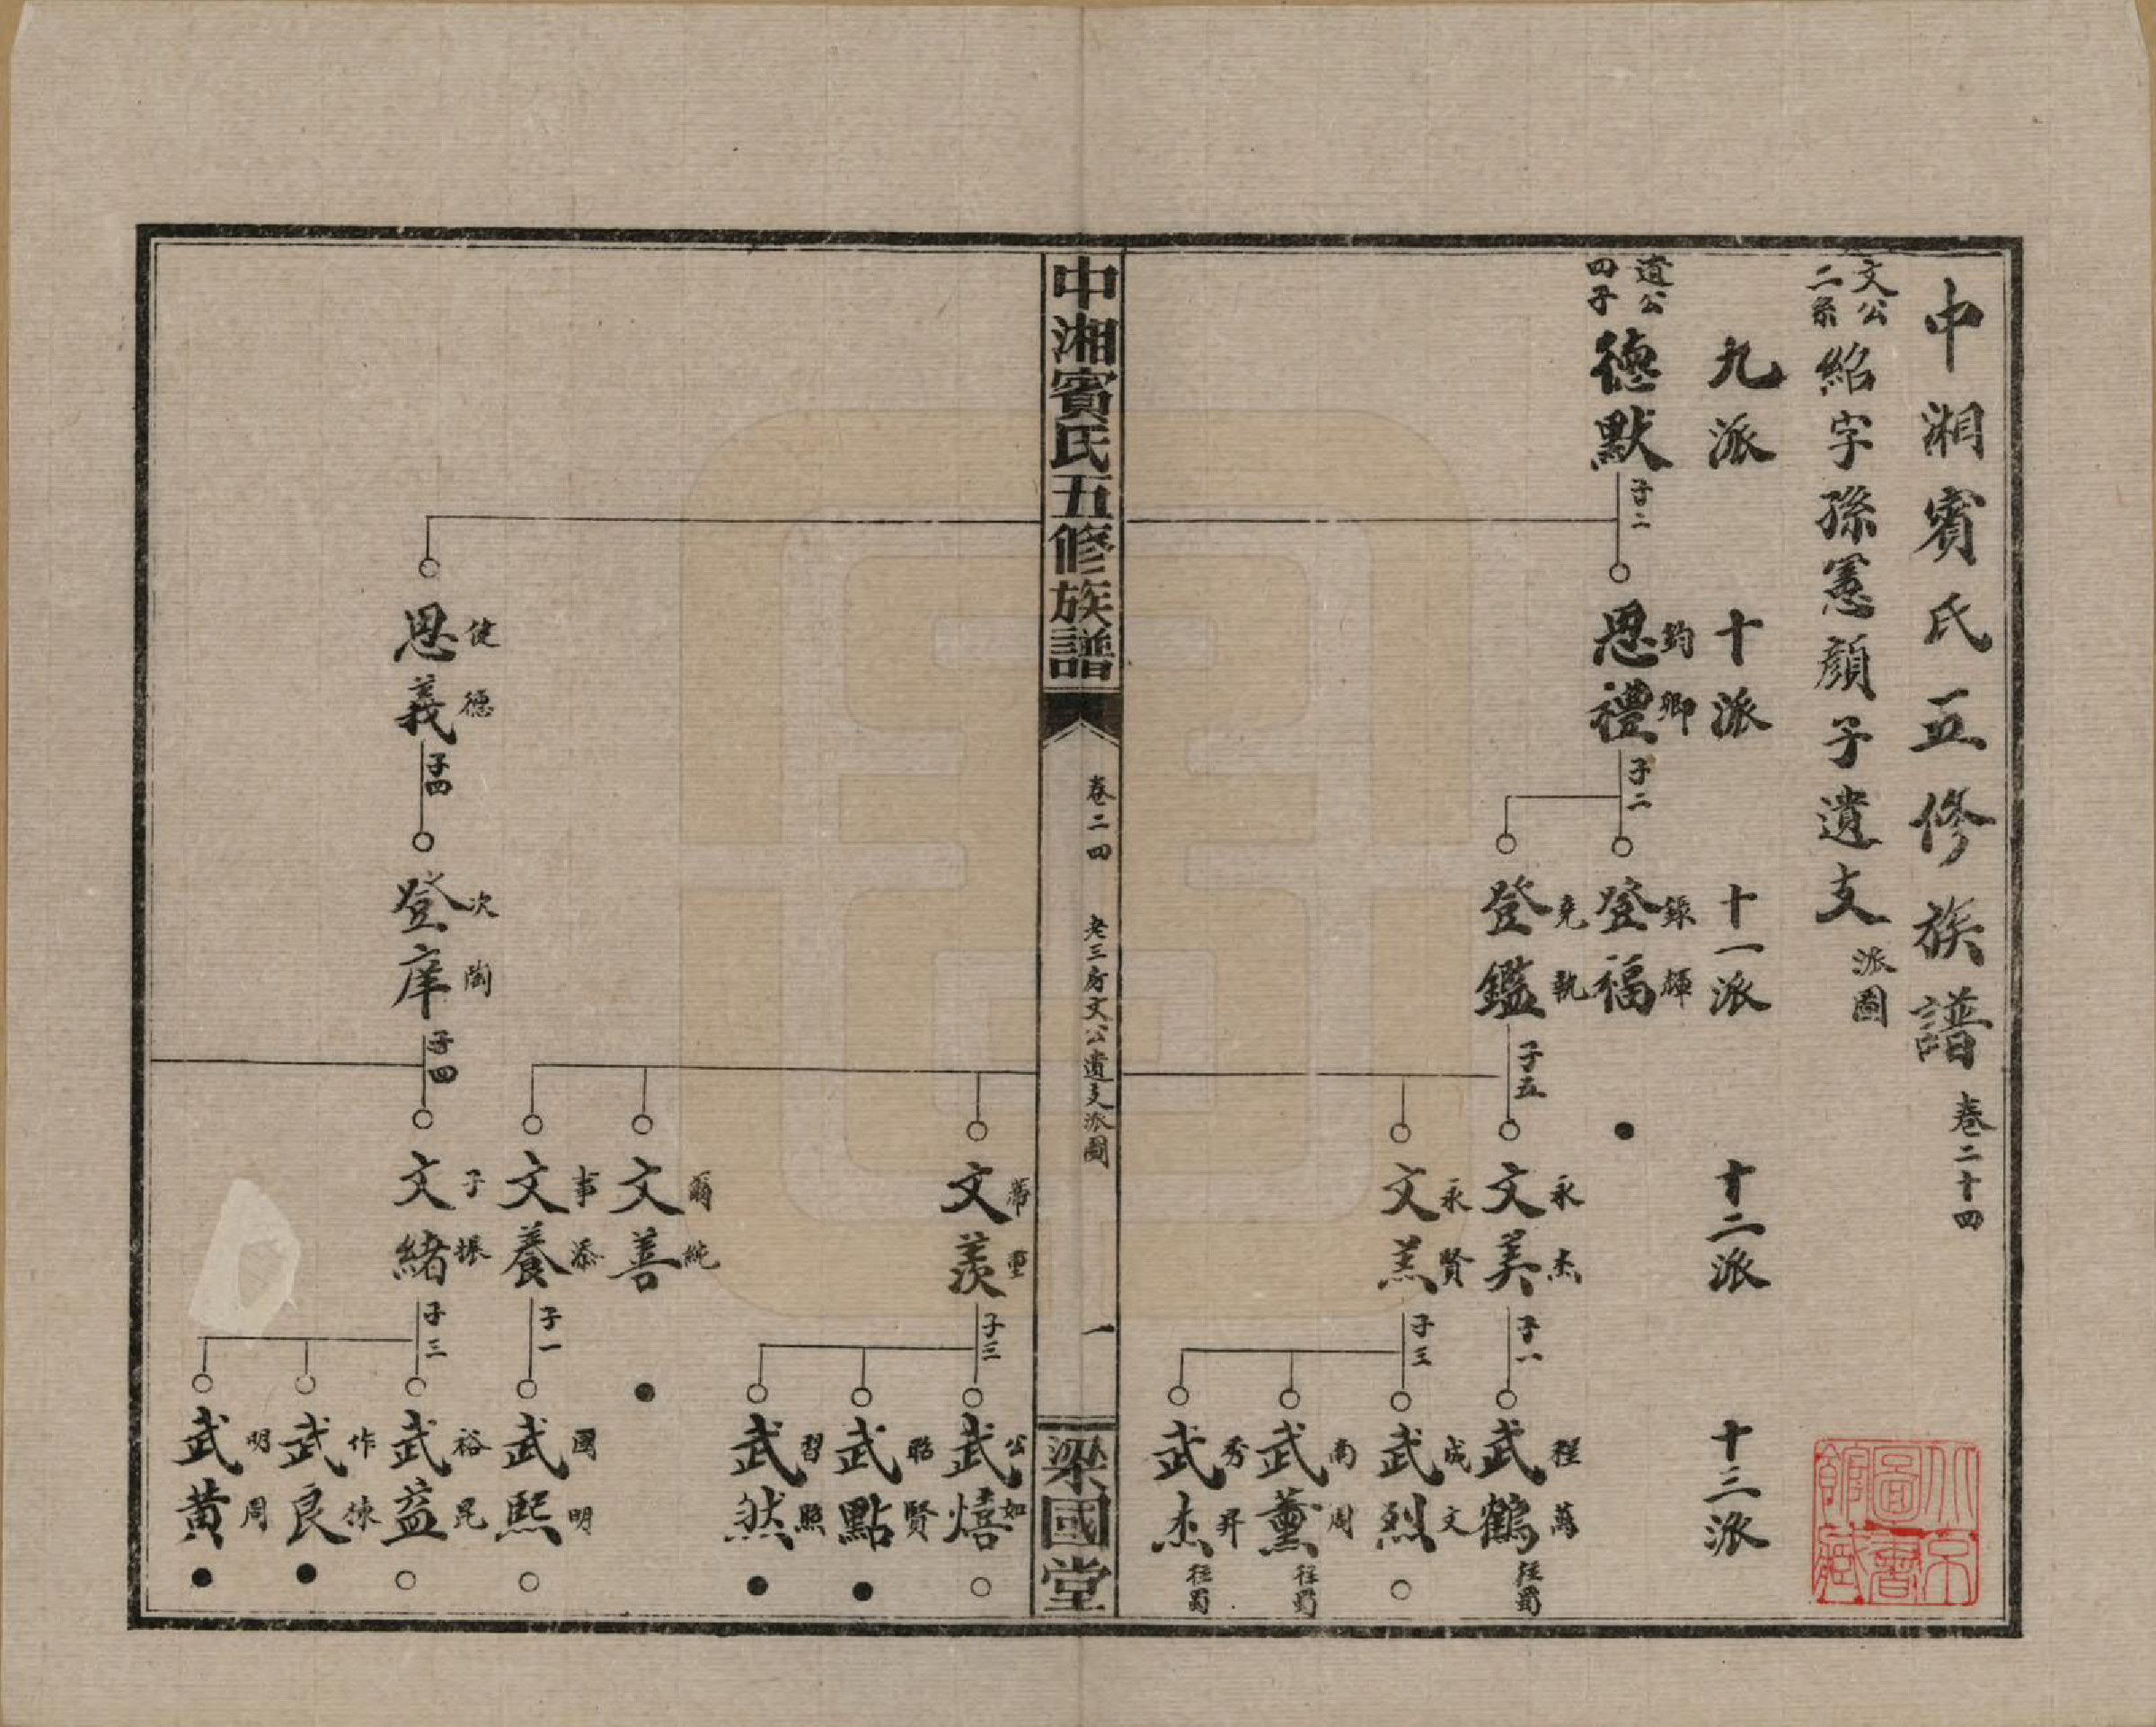 中湘賓氏五修族譜 卷二十四
文公二系 紹字孫憲顏子遺支 派圖
九派 十派 十一派 十二派 十三派
遺公四子 德默 子二
恩禮 鈞卿 子二
登福 錸輝
登鑑 堯執 子五
文美 永杰 子一
武鶴 程萬 往蜀
文羔 永賢 子三
武烈 成文
武薰 南周 往蜀
武杰 秀昇 往蜀
中湘賓氏五修族譜
卷二四
老三房文公遺支派圖
一
梁國堂
文羨 席重 子三
武熺 公如
武點 昭賢
武然 習照
文善 爾純
文養 事添 子一
武熙 國明
恩義 健德 子四
登庠 次陶 子四
文緒 子振 子三
武益 裕昆
武良 作徠
武黃 明周
北京圖書館藏